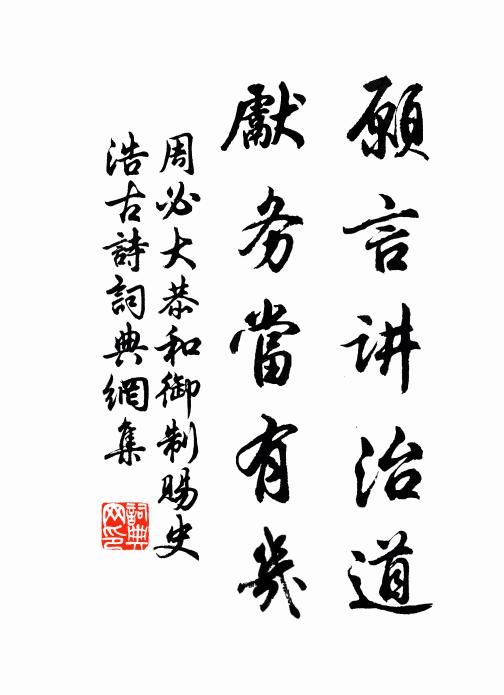 願言讲治道
獻务當有幾
周必大恭和御制賜史
浩古詩詞典網集
詞典
网印